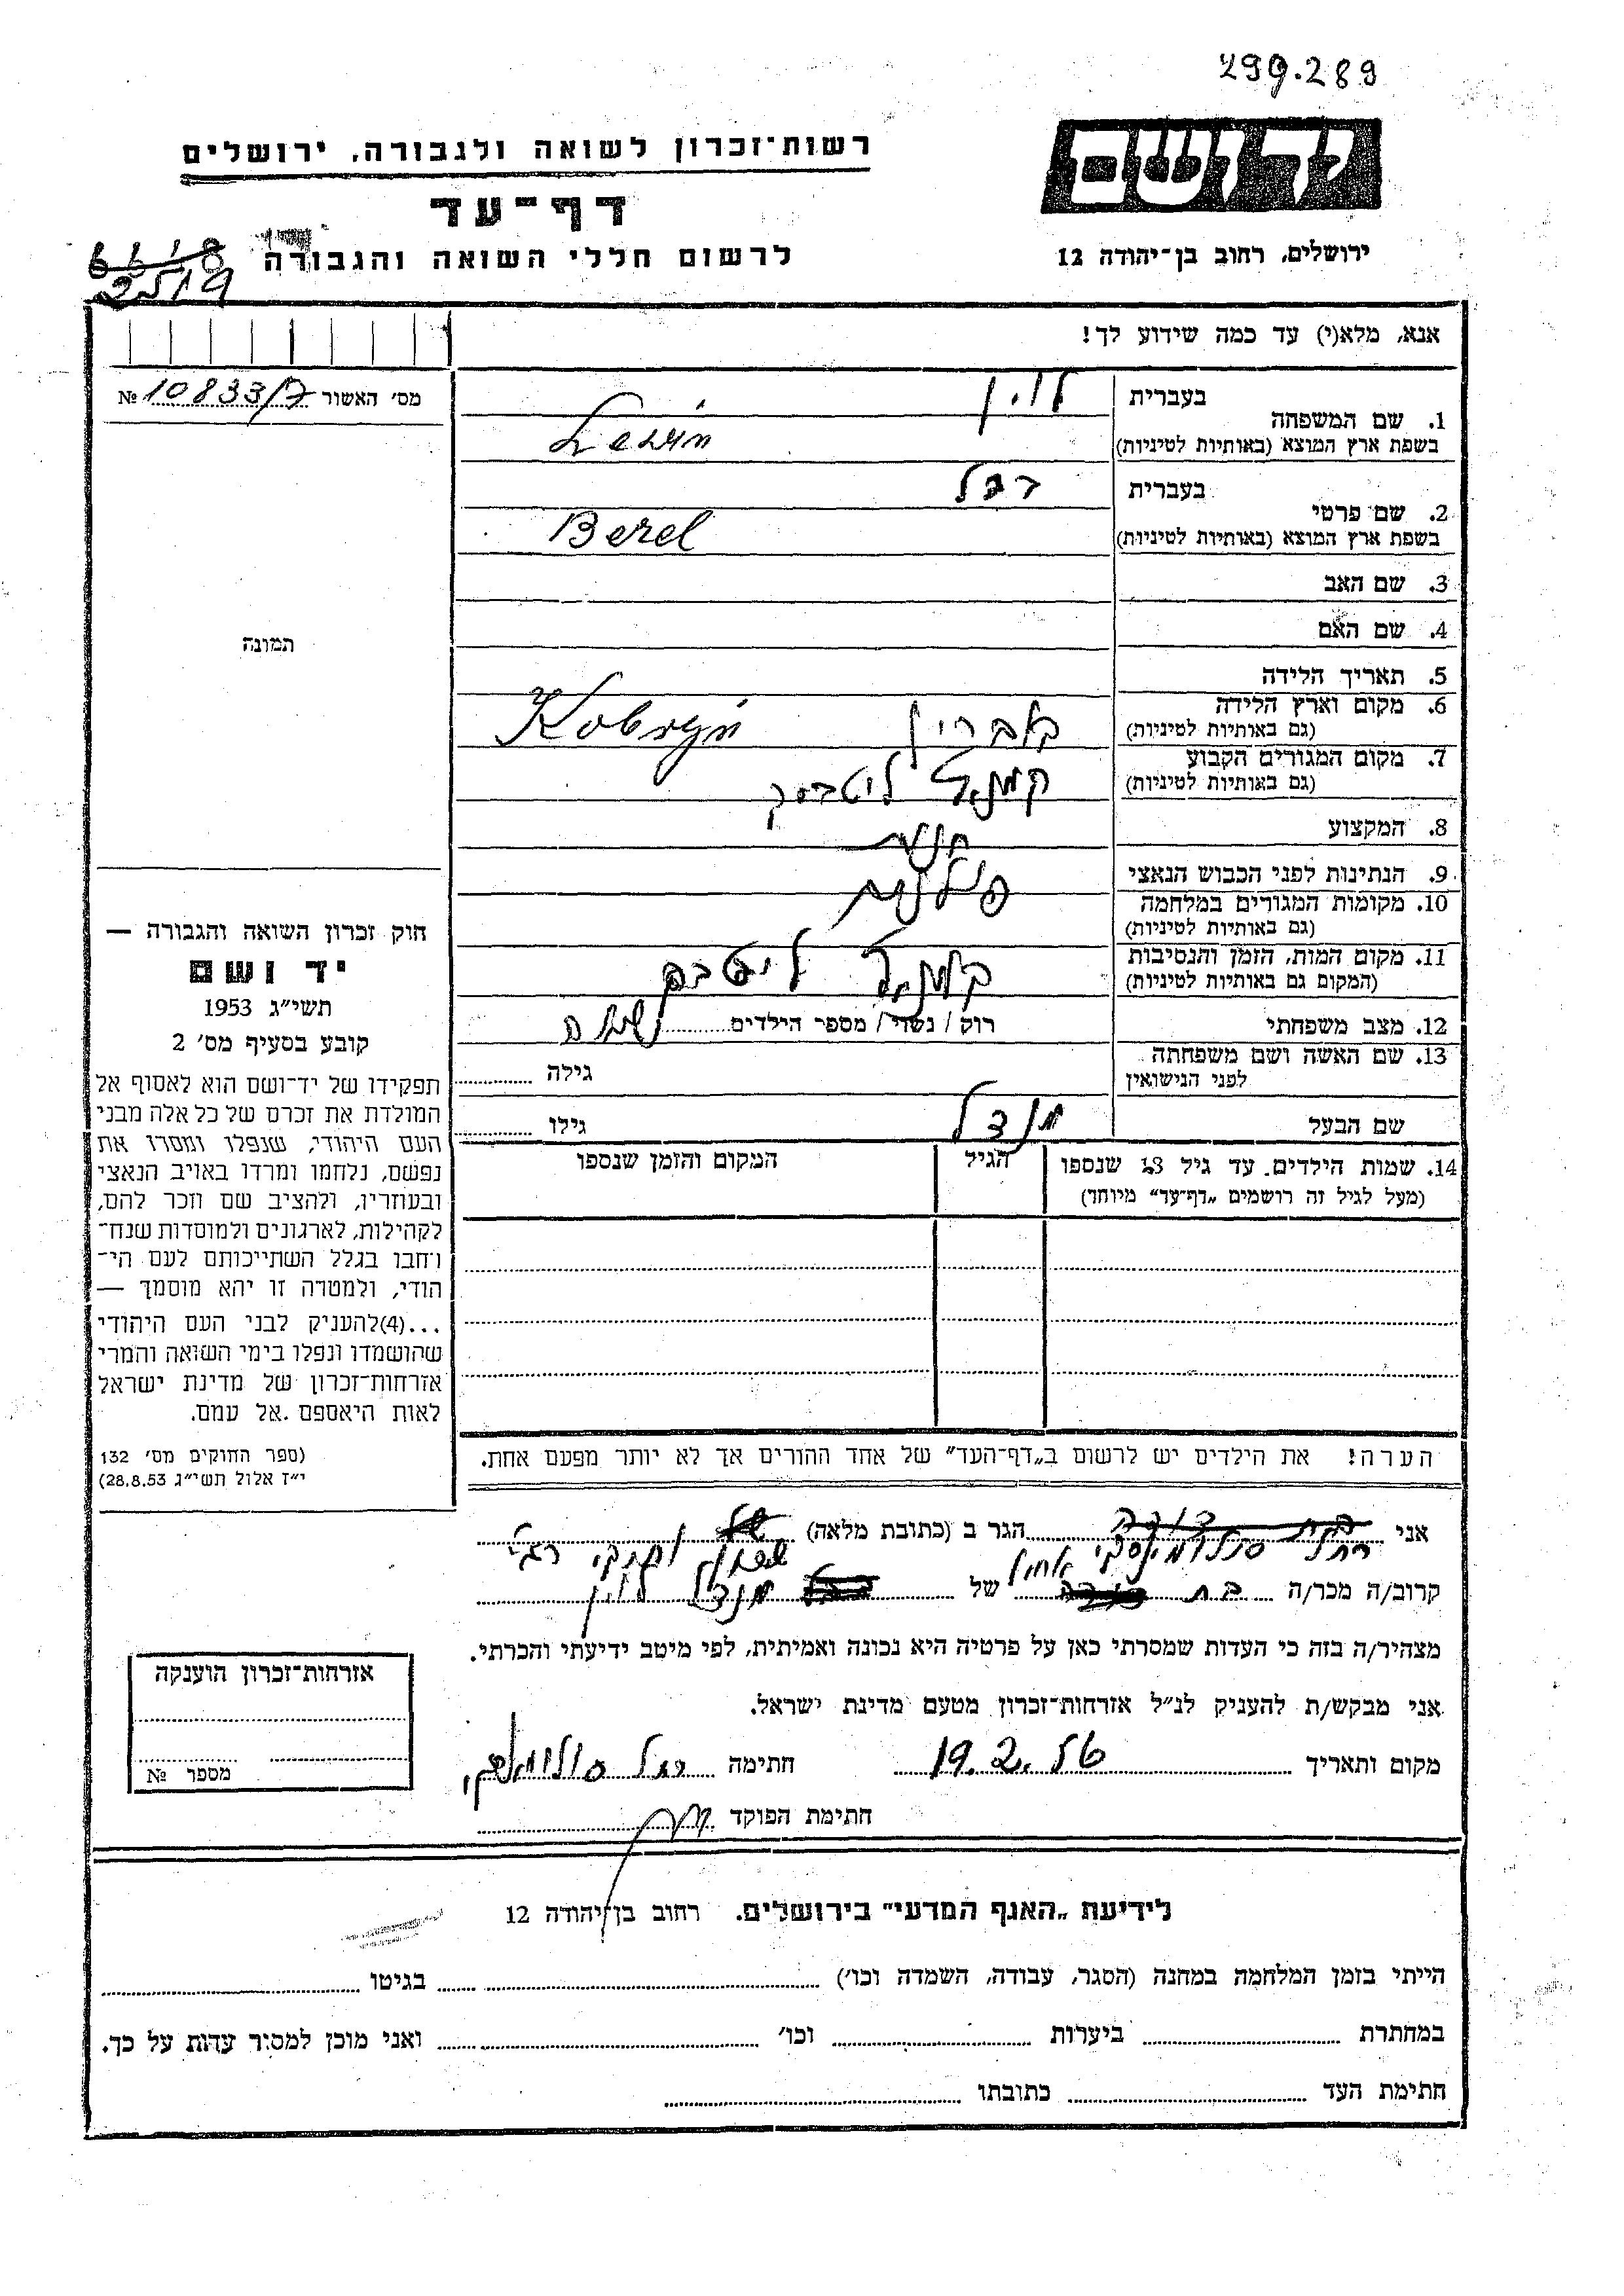 299.289
ידושם
רשות־זכרון לשואה ולגבורה, ירושלים
דף־עד
לרשום חללי השואה והגבורה
ירושלים, רחוב בן־יהודה 12
2519
אנא, מלא(י) עד כמה שידוע לך!
מס׳ האשור № 10833/7
1. שם המשפחה
בעברית לוין
בשפת ארץ המוצא (באותיות לטיניות) Lewin
2. שם פרטי
בעברית
בשפת ארץ המוצא (באותיות לטיניות) Berel
3. שם האב
4. שם האם
תמונה
5. תאריך הלידה
6. מקום וארץ הלידה קאברין Kobryń
(גם באותיות לטיניות)
7. מקום המגורים הקבוע ליטבסק
(גם באותיות לטיניות)
8. המקצוע
9. הנתינות לפני הכבוש הנאצי פולנית
10. מקומות המגורים במלחמה
(גם באותיות לטיניות)
11. מקום המות, הזמן והנסיבות ליטבסק
(המקום גם באותיות לטיניות)
12. מצב משפחתי רוק / נשוי / מספר הילדים
13. שם האשה ושם משפחתה
לפני הנישואין גילה
שם הבעל מנדל גילו
14. שמות הילדים עד גיל 18 שנספו הגיל המקום והזמן שנספו
(מעל לגיל זה רושמים „דף־עד” מיוחד)
חוק זכרון השואה והגבורה —
יד ושם
תשי״ג 1953
קובע בסעיף מס׳ 2
תפקידו של יד־ושם הוא לאסוף אל
המולדת את זכרם של כל אלה מבני
העם היהודי, שנפלו ומסרו את
נפשם, נלחמו ומרדו באויב הנאצי
ובעוזריו, ולהציב שם וזכר להם,
לקהילות, לארגונים ולמוסדות שנח־
רחבו בגלל השתייכותם לעם הי־
הודי, ולמטרה זו יהא מוסמך —
...(4)להעניק לבני העם היהודי
שהושמדו ונפלו בימי השואה והמרי
אזרחות־זכרון של מדינת ישראל
לאות היאספם אל עמם.
(ספר החוקים מס׳ 132
י״ז אלול תשי״ג 28.8.53)
הערה! את הילדים יש לרשום ב„דף־העד” של אחד ההורים אך לא יותר מפעם אחת.
אני הגר ב (כתובת מלאה)
רחל
קרוב/ה מכר/ה בת אחיו של מנדל לוין
מצהיר/ה בזה כי העדות שמסרתי כאן על פרטיה היא נכונה ואמיתית, לפי מיטב ידיעתי והכרתי.
אני מבקש/ת להעניק לנ״ל אזרחות־זכרון מטעם מדינת ישראל.
מקום ותאריך 19.2.56 חתימה רחל
חתימת הפוקד
אזרחות־זכרון הוענקה
מספר №
לידיעת „האגף המדעי” בירושלים. רחוב בן־יהודה 12
הייתי בזמן המלחמה במחנה (הסגר, עבודה, השמדה וכו׳) בגיטו
במחתרת ביערות וכו׳ ואני מוכן למסור עדות על כך.
חתימת העד כתובתו